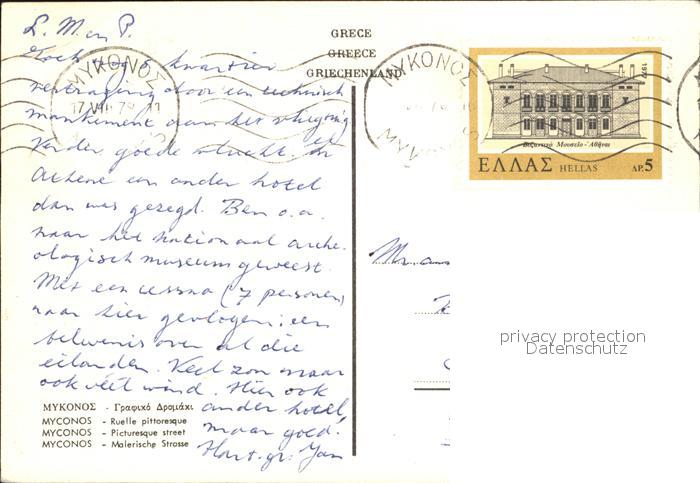 L. M en P.
Toch nog 5 kwartier
vertraging door een technisch
mankement aan het vliegtuig
Verder goede vlucht. In
Athene een ander hotel
dan was gezegd. Ben o.a.
naar het nationaal arche-
ologisch museum geweest.
Met een cessna (7 personen)
naar hier gevlogen; een
belevenis over al die
eilanden. Veel zon maar
ook veel wind. Hier ook
ander hotel,
maar goed.
Hart. gr. Jan
ΜΥΚΟΝΟΣ - Γραφικό Δρομάκι
MYCONOS - Ruelle pittoresque
MYCONOS - Picturesque street
MYCONOS - Malerische Strasse
GRECE
GREECE
GRIECHENLAND
ΜΥΚΟΝΟΣ
ΜΥΚΟΝΟΣ
1978
Βυζαντινό Μουσείο - Ἀθῆναι
ΕΛΛΑΣ HELLAS ΔΡ. 5
privacy protection
Datenschutz